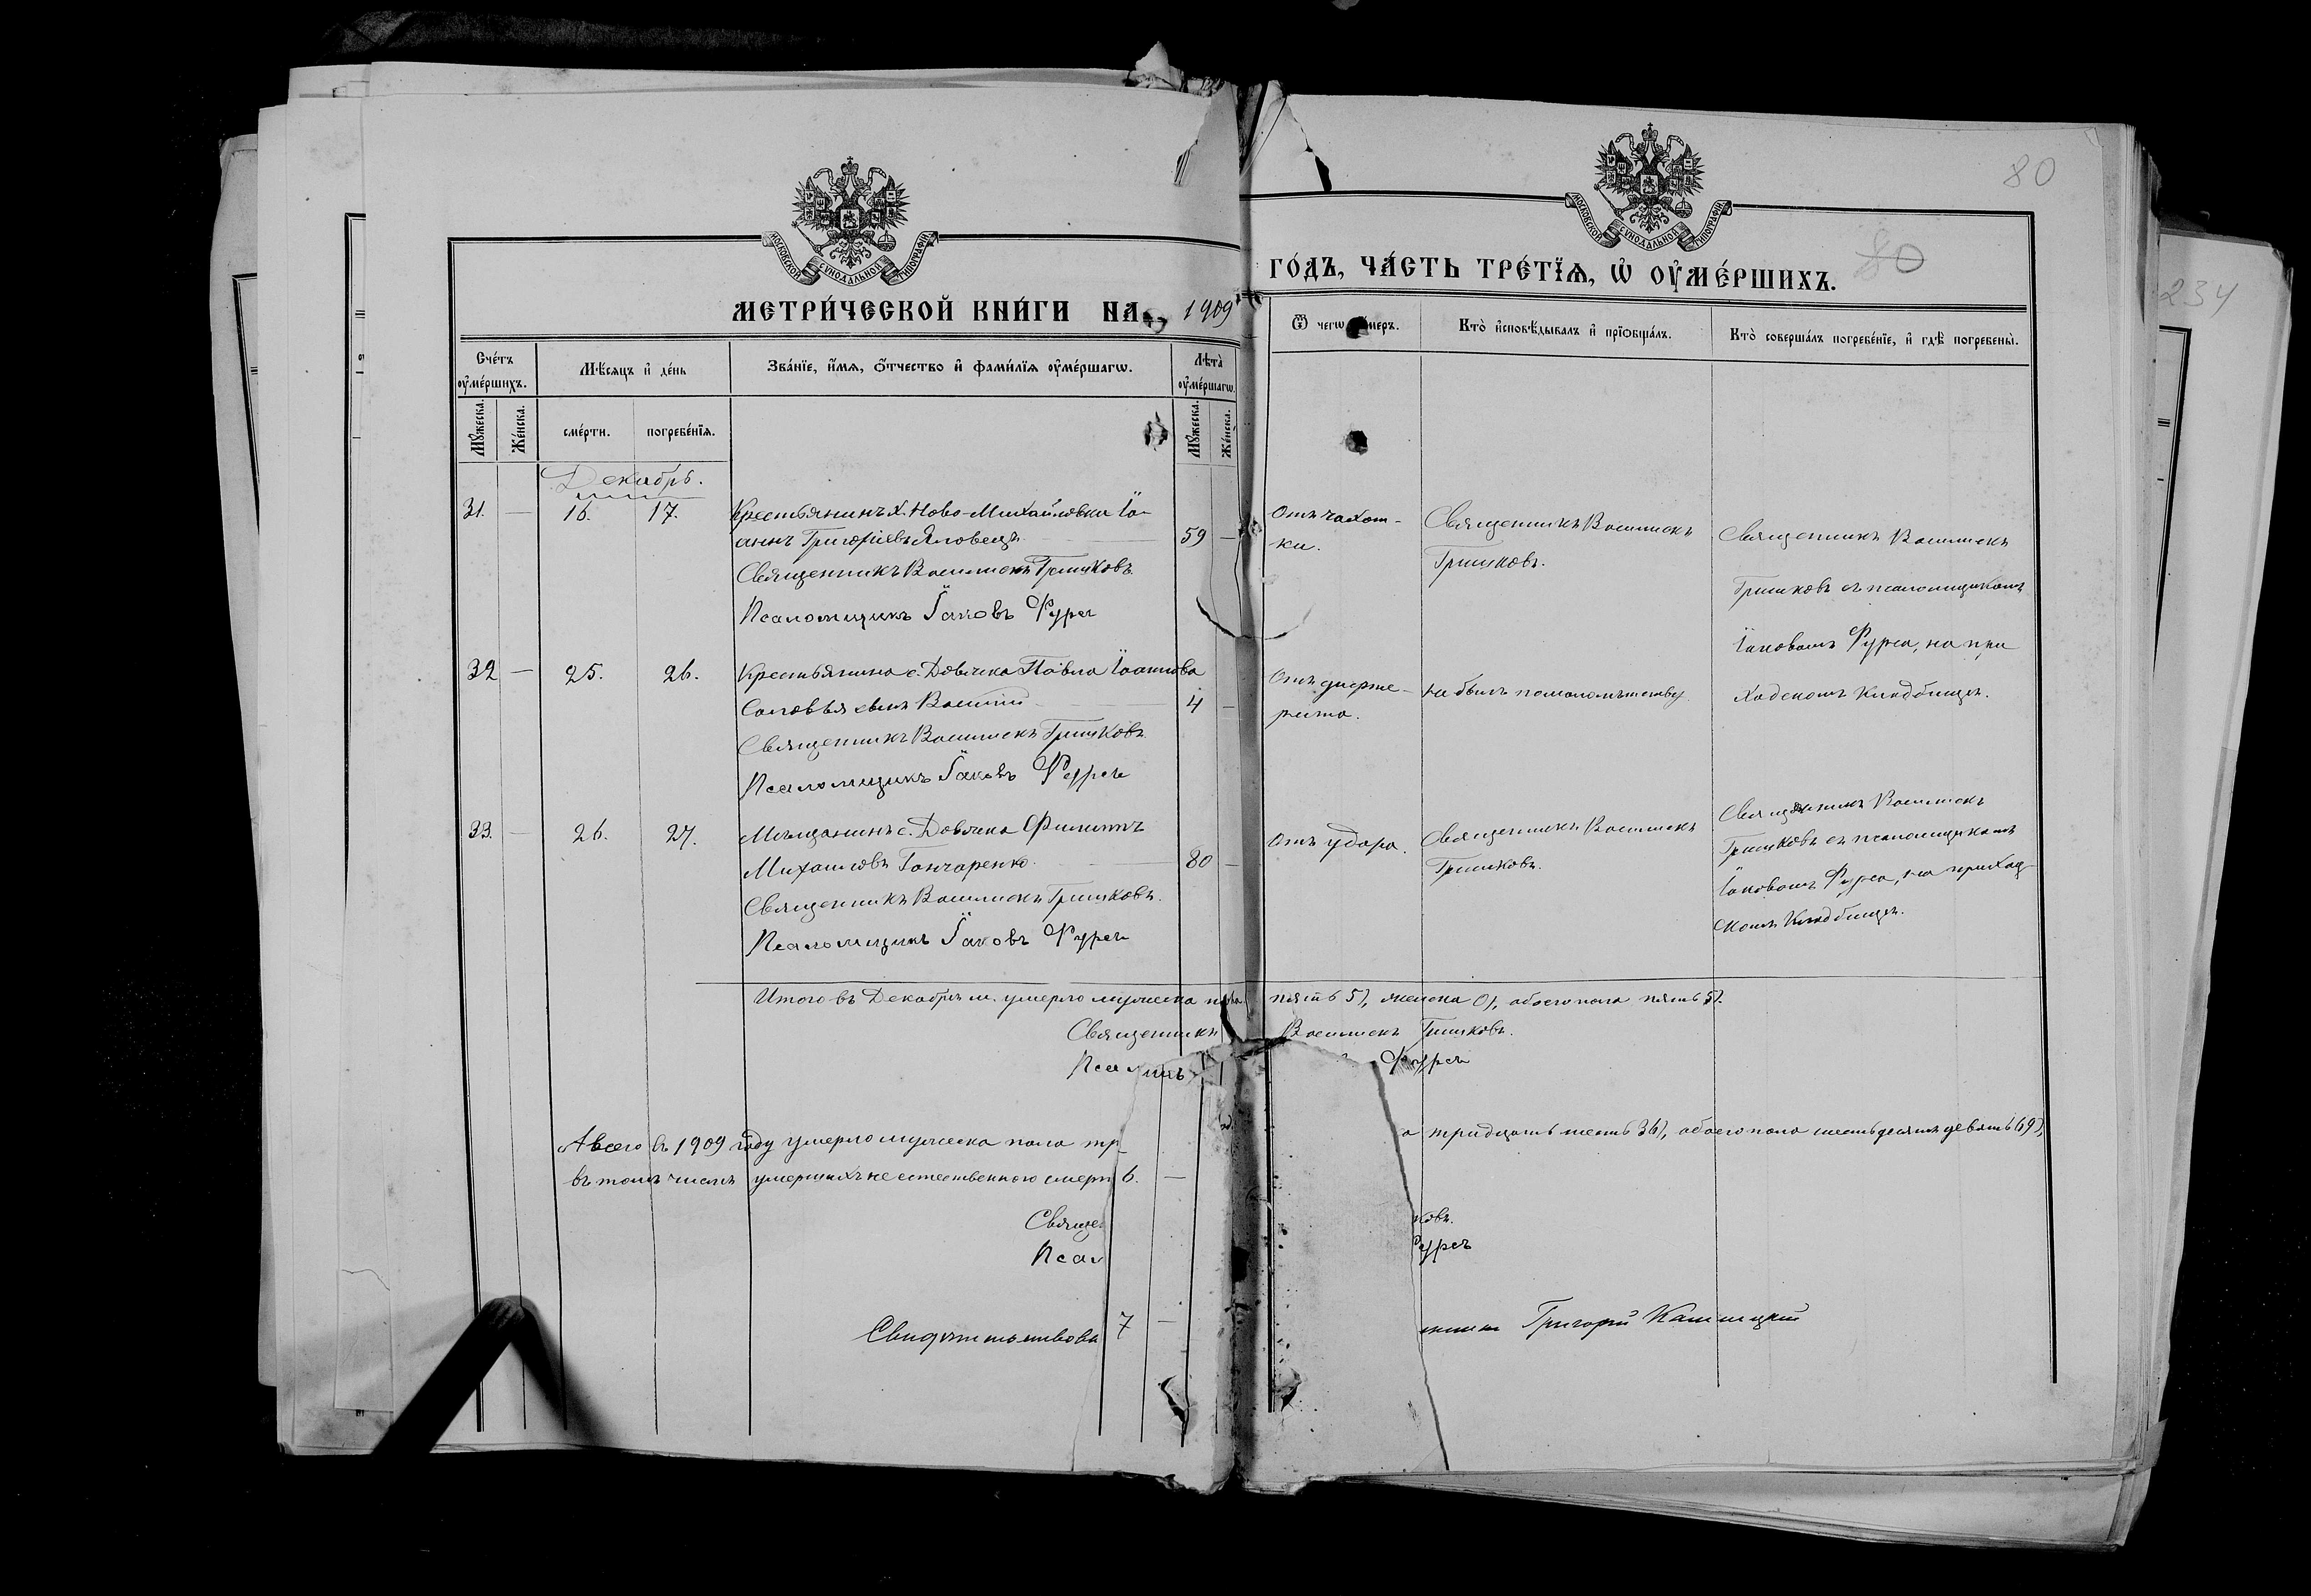 80
МОСКОВСКОЙ СУНОДАЛЬНОЙ ТИПОГРАФІИ
МОСКОВСКОЙ СУНОДАЛЬНОЙ ТИПОГРАФІИ
МЕТРИ́ЧЕСКОЙ КНИ́ГИ НА 1909
ГО́ДЪ, ЧА́СТЬ ТРЕ́ТЇѦ, Ѡ҆ ОУ҆МЕ́РШИХЪ.
80
234
Сче́тъ оу҆ме́ршихъ.
Мѣ́сяцъ и҆ де́нь
Зва́нїе, и҆́мѧ, ѻ҆́тчество и҆ фами́лїѧ оу҆ме́ршагѡ.
Лѣ́та оу҆ме́ршагѡ.
Ѿ чегѡ̀ оу҆́меръ.
Кто̀ и҆сповѣ́дывалъ и҆ прїѻбща́лъ.
Кто̀ соверша́лъ погребе́нїе, и҆ гдѣ̀ погребены̀.
Мꙋ́жеска.
Же́нска.
сме́рти.
погребе́нїѧ.
Мꙋ́жеска.
Же́нска.
Декабрь.
31. — 16. 17. Крестьянинъ х. Ново-Михайловки Іо-
аннъ Григоріевъ Яловецъ 59 —
Священникъ Василискъ Гришковъ.
Псаломщикъ Іаковъ Фурса
Отъ чахот-
ки.
Священникъ Василискъ
Гришковъ.
Священникъ Василискъ
Гришковъ съ псаломщикомъ
Іаковомъ Фурса, на при
ходскомъ кладбищѣ.
32 — 25. 26. Крестьянина с. Довжка Павла Іоаннова
Соловья сынъ Василій 4 —
Священникъ Василискъ Гришковъ.
Псаломщикъ Іаковъ Фурса
Отъ дифте-
рита.
Не былъ по малолѣтству
33. — 26. 27. Мѣщанинъ с. Довжка Филиппъ
Михаиловъ Гончаренко 80 —
Священникъ Василискъ Гришковъ.
Псаломщикъ Іаковъ Фурса
Отъ удара.
Священникъ Василискъ
Гришковъ.
Священникъ Василискъ
Гришковъ съ псаломщикомъ
Іаковомъ Фурса, на приход-
скомъ кладбищѣ.
Итого въ Декабрѣ м. умерло мужеска пола пять 5), женска 0), обоего пола пять 5).
Священникъ Василискъ Гришковъ.
Фурса
А всего въ 1909 году умерло мужеска пола тр
а тридцать шесть 36), обоего пола шестьдесятъ девять 69),
въ томъ числѣ умершихъ не естественною смерт 6. —
Священ ковъ.
Псал Фурса
Свидѣтельствова 7 —
Григорій